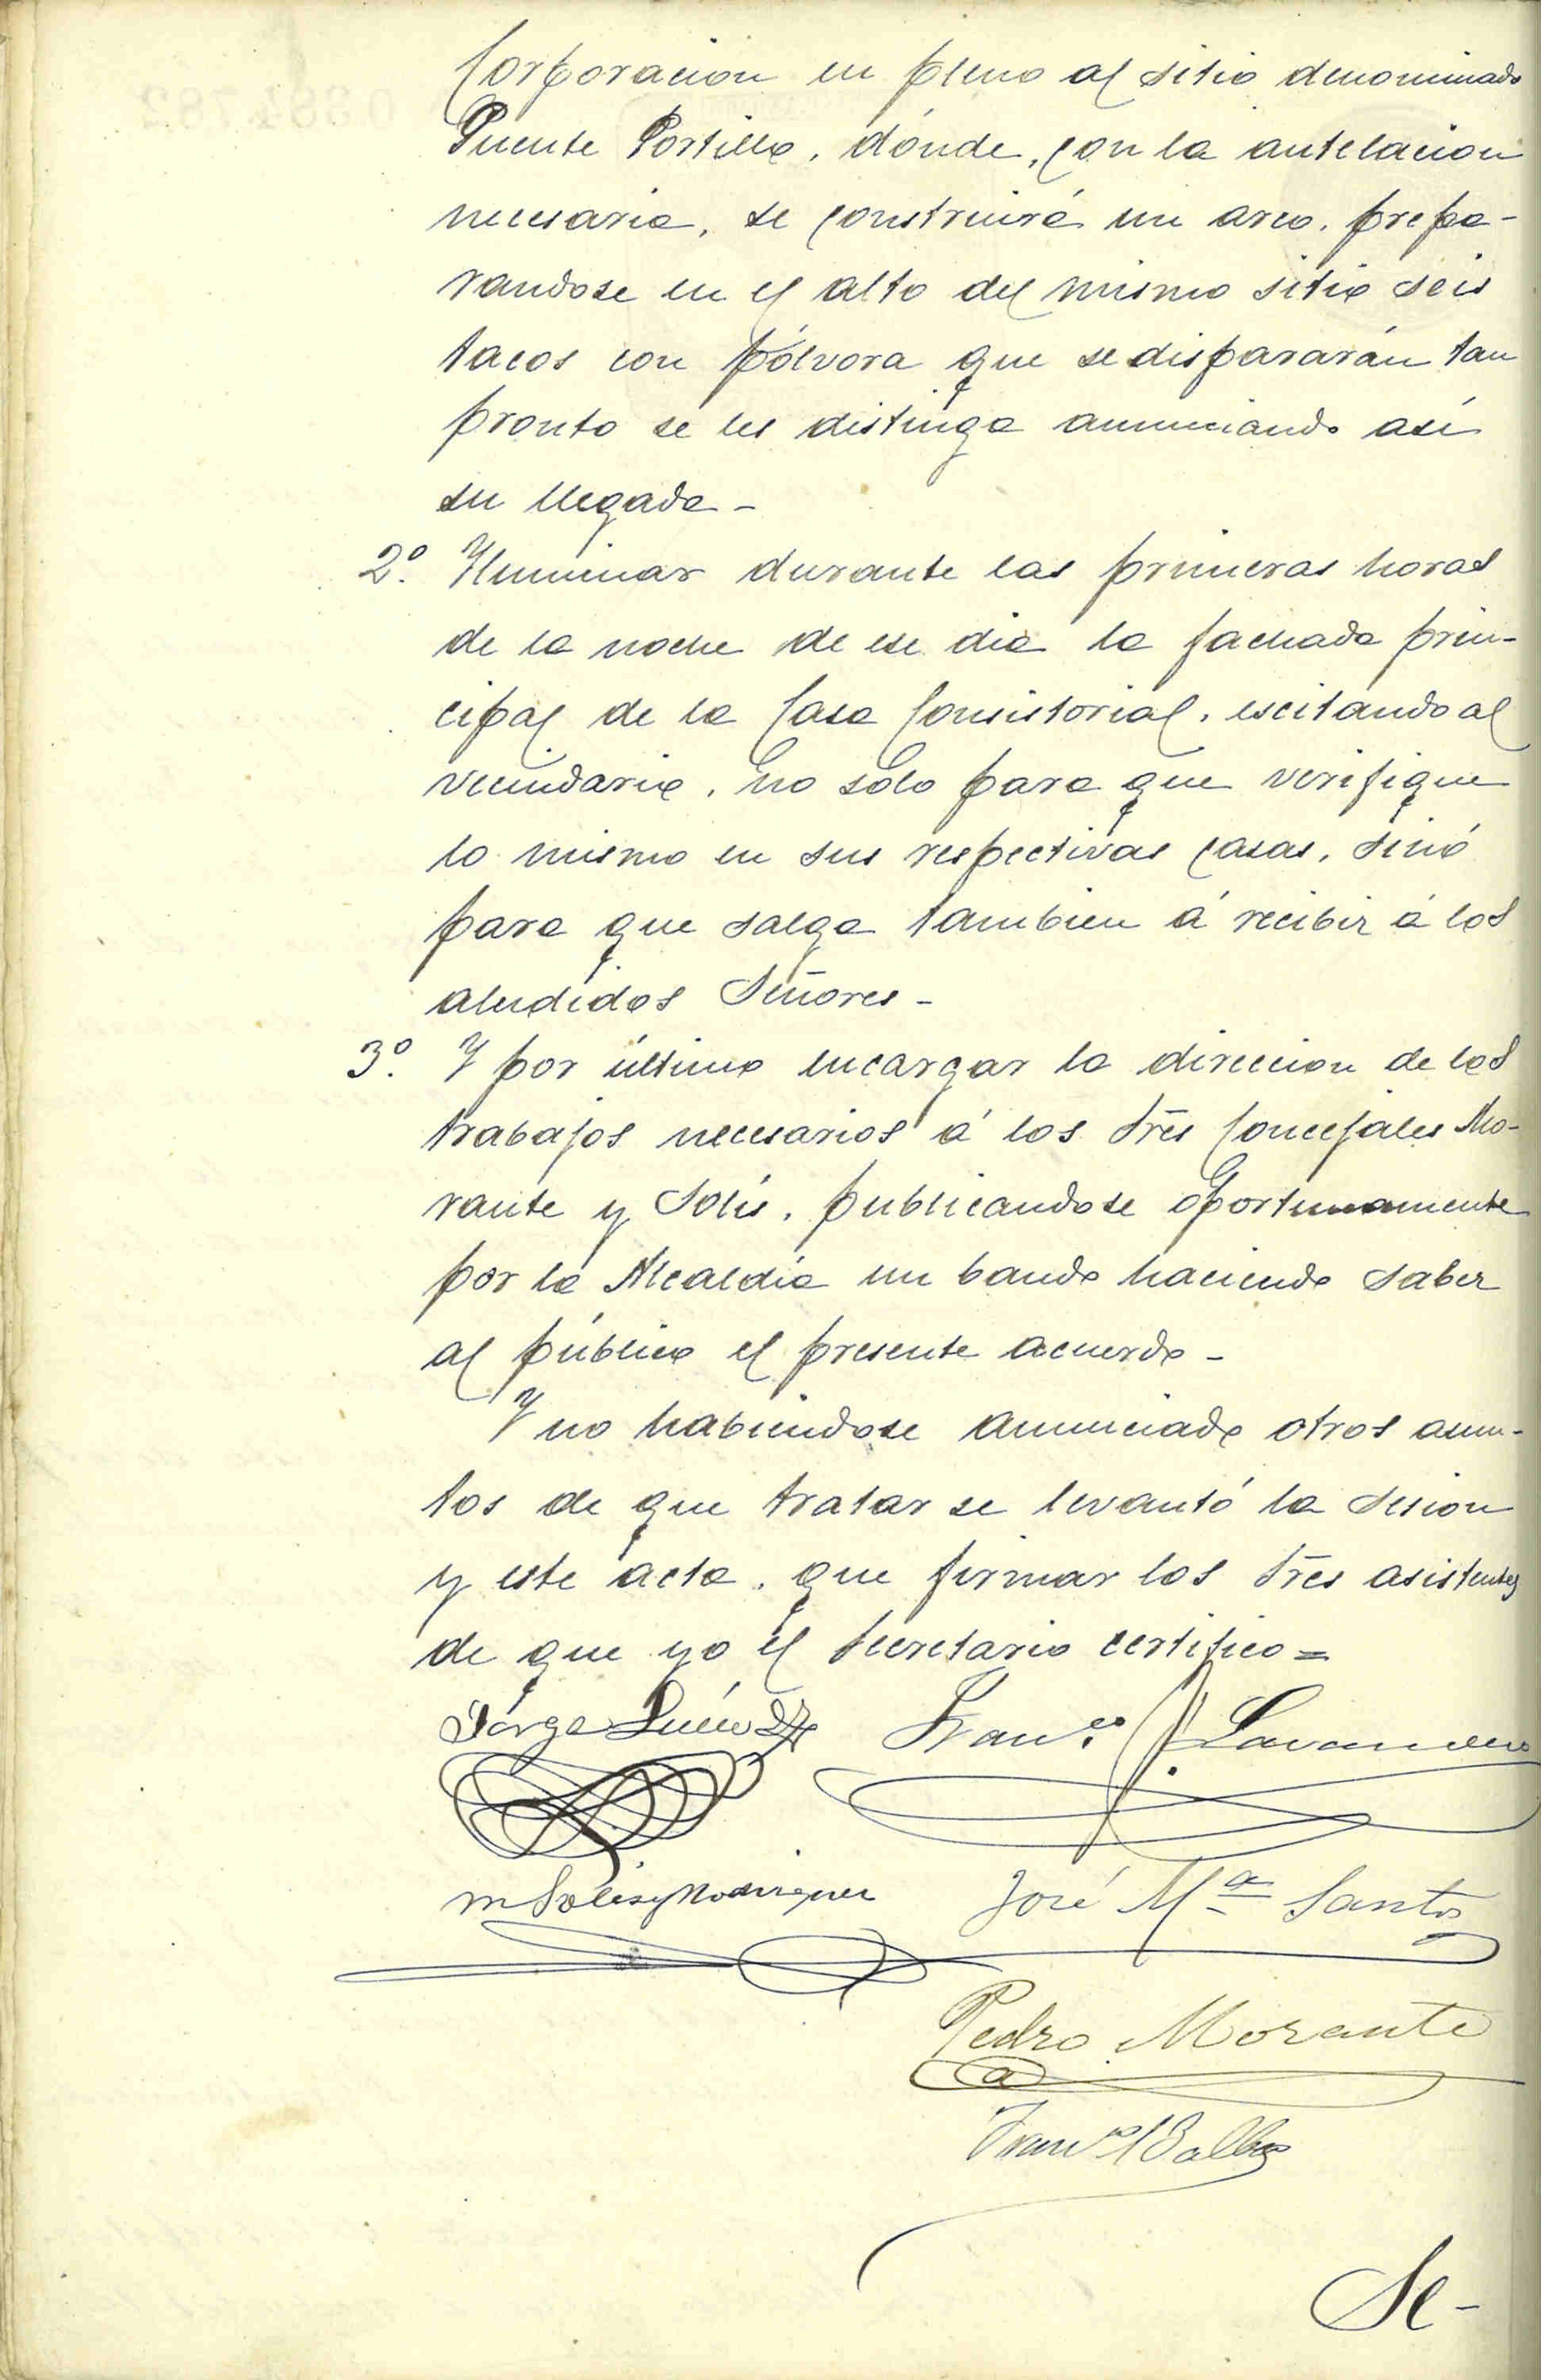 Corporacion en pleno al sitio denominado
Puente Portillo, dónde, con la antelacion
necesaria, se construirá un arco, prepa-
randose en el alto del mismo sitio seis
tacos con pólvora que se dispararán tan
pronto se les distinga anunciando así
su llegada -
2º. Iluminar durante las primeras horas
de la noche de ese dia la fachada prin-
cipal de la Casa Consistorial, escitando al
vecindario, no sólo para que verifique
lo mismo en sus respectivas casas, sinó
para que salga tambien á recibir á los
aludidos Señores -
3º. Y por último encargar la direccion de los
trabajos necesarios á los Sres Concejales Mo-
rante y Solís, publicandose oportunamente
por la Alcaldía un bando haciendo saber
al público el presente acuerdo -
Y no habiendose anunciado otros asun-
tos de que tratar se levantó la sesion
y este acta, que firman los Sres asistentes
de que yo el Secretario certifico =
Jorge Franco Lavandero
M Solis y Rodriguez José Mª Santos
Pedro Morante
Franco Balbas
Se-